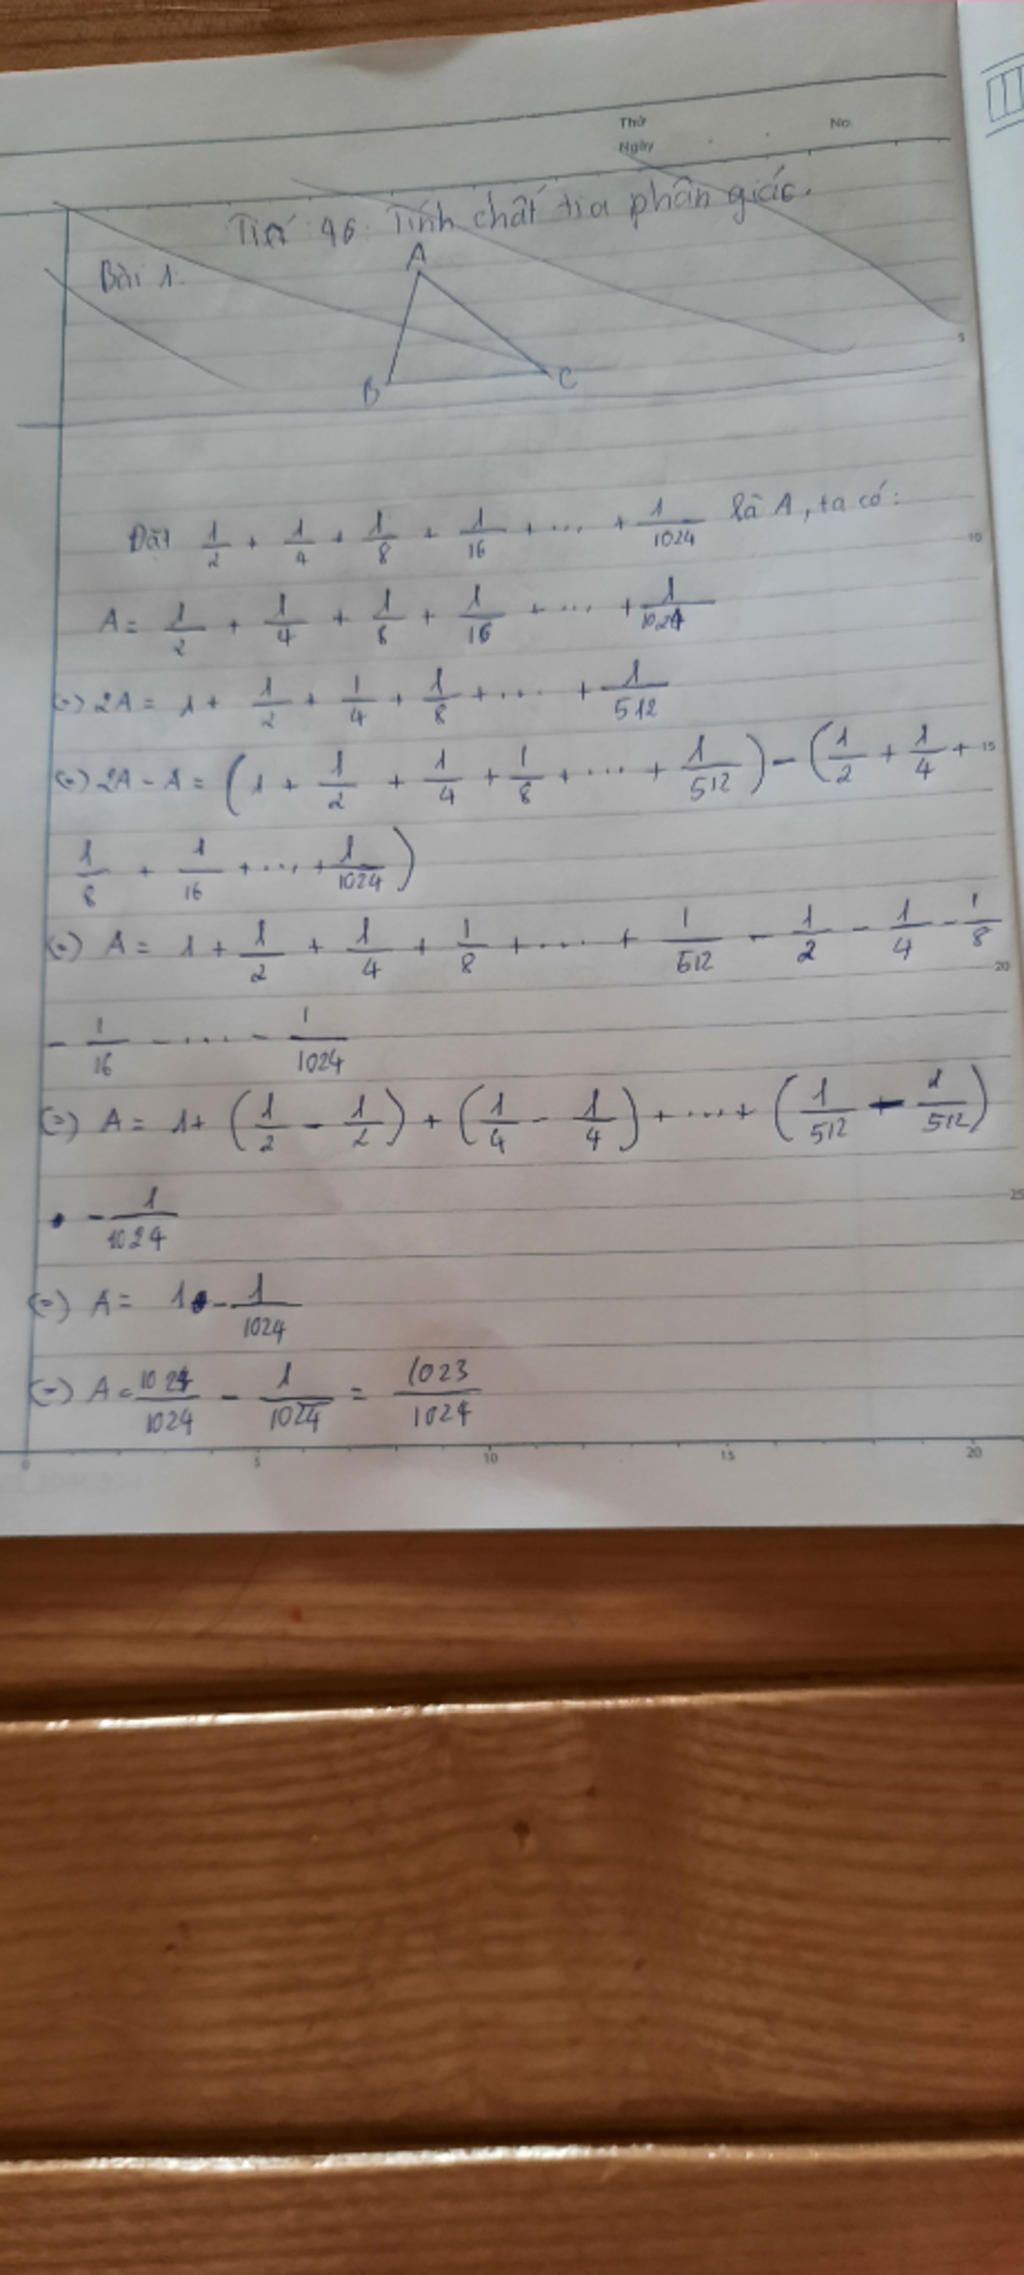 Thứ No.
Ngày
Tiết 46. Tính chất tia phân giác.
Bài 1.
A
B C
5
Đặt 1/2 + 1/4 + 1/8 + 1/16 + ... + 1/1024 là A, ta có:
10
A = 1/2 + 1/4 + 1/8 + 1/16 + ... + 1/1024
(=) 2A = 1 + 1/2 + 1/4 + 1/8 + ... + 1/512
(=) 2A - A = (1 + 1/2 + 1/4 + 1/8 + ... + 1/512) - (1/2 + 1/4 + 15
1/8 + 1/16 + ... + 1/1024)
(=) A = 1 + 1/2 + 1/4 + 1/8 + ... + 1/512 - 1/2 - 1/4 - 1/8
20
- 1/16 - ... - 1/1024
(=) A = 1 + (1/2 - 1/2) + (1/4 - 1/4) + ... + (1/512 - 1/512)
- 1/1024
25
(=) A = 1 - 1/1024
(=) A = 1024/1024 - 1/1024 = 1023/1024
0 5 10 15 20